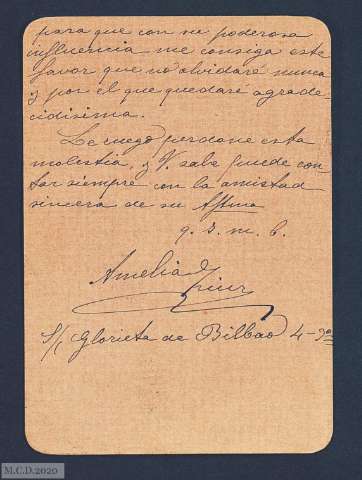 para que con su poderosa
influencia me consiga este
favor que no olvidaré nunca
y por el que quedaré agrade-
cidisima.
Le ruego perdone esta
molestia, y V. sabe puede con
tar siempre con la amistad
sincera de su Afftma
q. s. m. b.
Amelia
S/C Glorieta de Bilbao 4-3º
M.C.D.2020